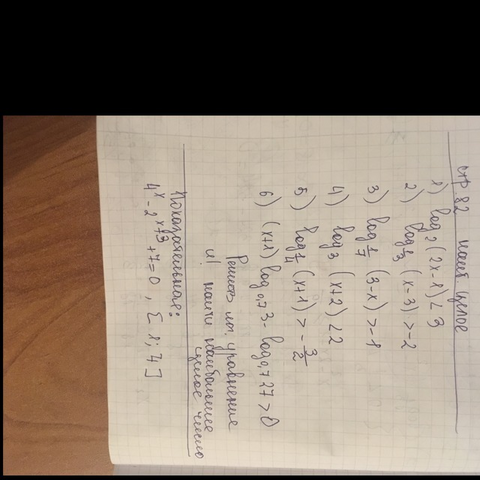 стр 82 наиб целое
1) log₂ (2x-1) < 3
2) log⅓ (x-3) > -2
3) log 1/7 (3-x) > -1
4) log₃ (x+2) < 2
5) log ¼ (x+1) > - 3/2
6) (x+1) log₀,₇ 3 - log₀,₇ 27 > 0
Решить лог. уравнение
и найти наибольшее
целое число
Показательная:
4ˣ - 2ˣ⁺³ + 7 = 0 , [-1; 4]